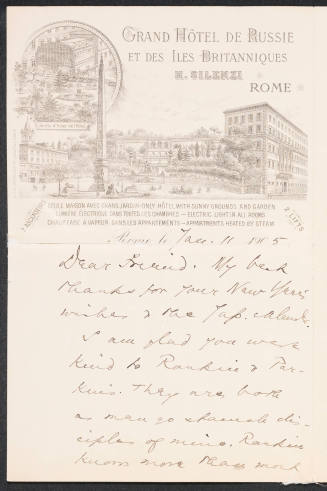 GRAND HÔTEL DE RUSSIE
ET DES ILES BRITANNIQUES
H. SILENZI
ROME
2 ASCENSEURS
2 LIFTS
SEULE MAISON AVEC GRAND JARDIN-ONLY HÔTEL WITH SUNNY GROUNDS AND GARDEN
LUMIÈRE ÉLECTRIQUE DANS TOUTES LES CHAMBRES — ELECTRIC LIGHT IN ALL ROOMS
CHAUFFAGE A VAPEUR DANS LES APPARTEMENTS — APARTMENTS HEATED BY STEAM
Rome le Jan. 11 1905
Dear Friend. My best
thanks for your New Year's
wishes & the Jap. calendar.
I am glad you were
kind to Rankin & Per-
kins. They are both
as man go staunch dis-
ciples of mine. Rankin
knows more than most